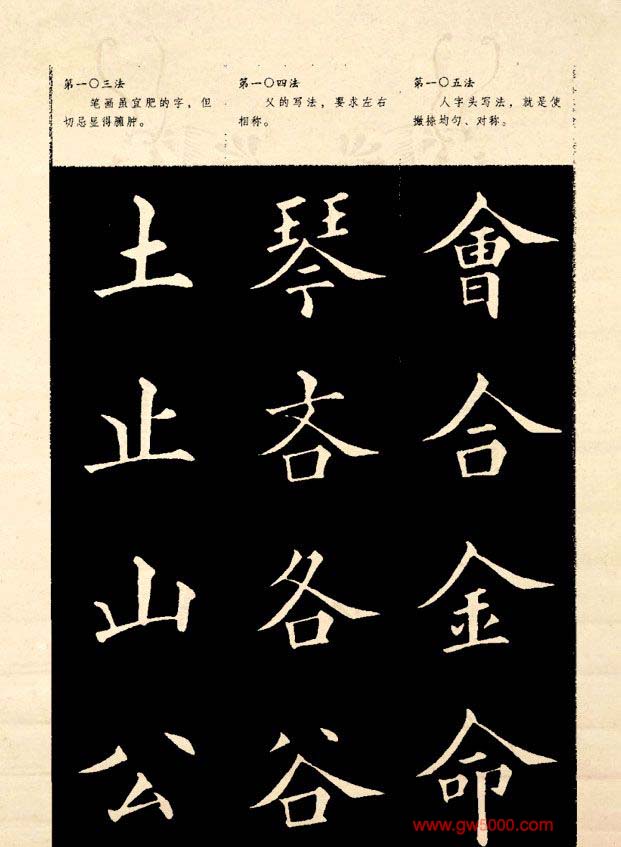 第一〇三法
笔画虽宜肥的字，但
切忌显得臃肿。
土
止
山
公
第一〇四法
父的写法，要求左右
相称。
琴
吝
各
谷
第一〇五法
人字头写法，就是使
撇捺均匀、对称。
會
合
金
命
www.gw5000.com